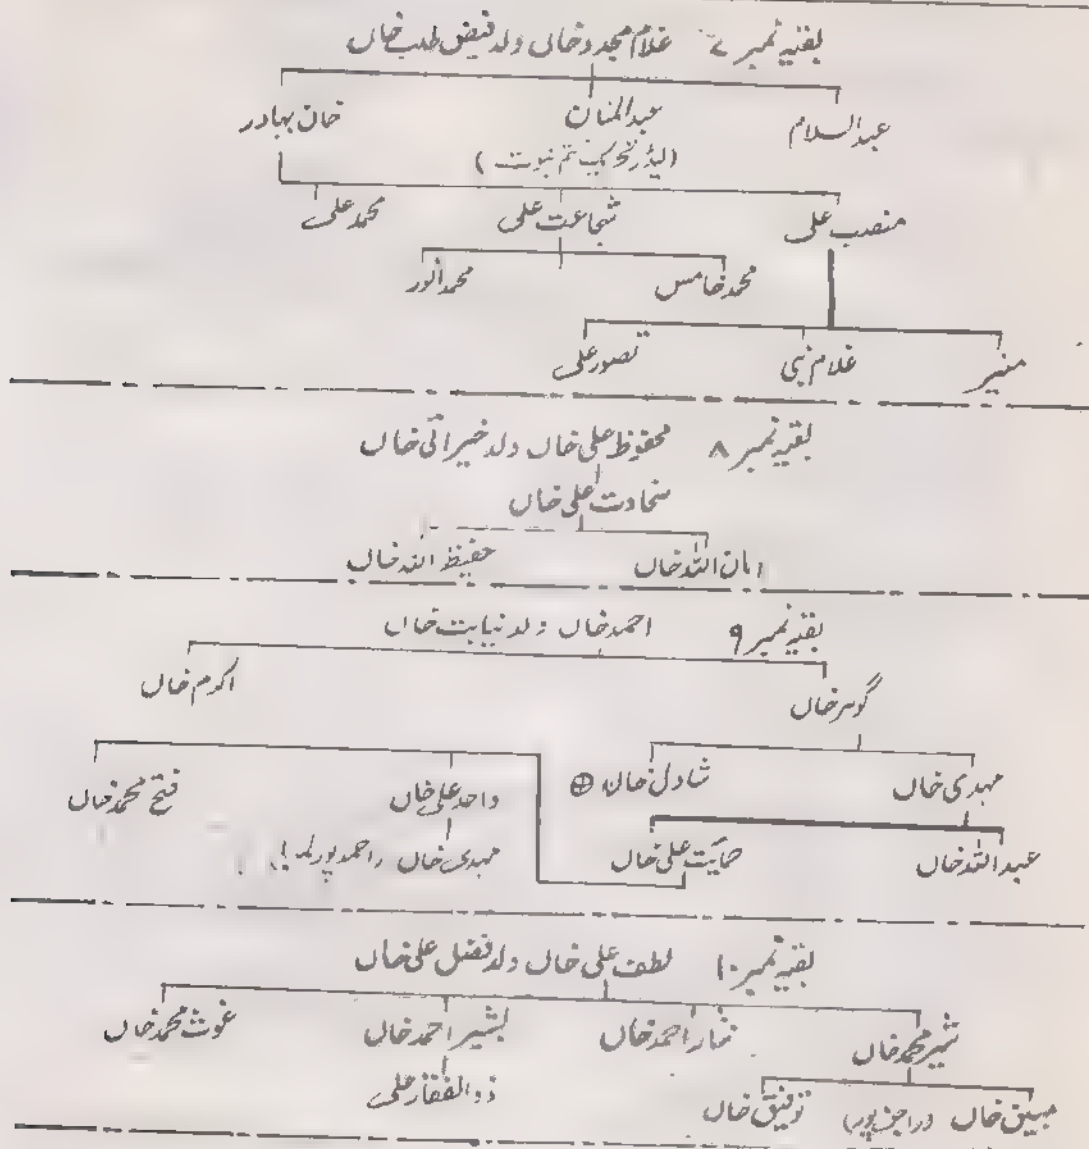 بقیہ نمبر ۷ غلام مجدد خاں ولد فیض طلب خاں
عبدالسلام عبدالمنان خان بہادر
(لیڈر تحریک ختم نبوت)
منصب علی شجاعت علی محمد علی
محمد خامس محمد انور
منیر غلام نبی تصور علی
بقیہ نمبر ۸ محفوظ علی خاں ولد خیراتی خاں
سخاوت علی خاں
امان اللہ خاں حفیظ اللہ خاں
بقیہ نمبر ۹ احمد خاں ولد نیابت خاں
گوہر خاں اکرم خاں
مہدی خاں شادل خان ⊕ واحد علی خاں فتح محمد خاں
عبداللہ خاں حمایت علی خاں مہدی خاں (احمد پور
بقیہ نمبر ۱۰ لطف علی خاں ولد فضل علی خاں
شیر محمد خاں نثار احمد خاں بشیر احمد خاں غوث محمد خاں
مبین خاں (راجن پور) توفیق خاں ذوالفقار علی